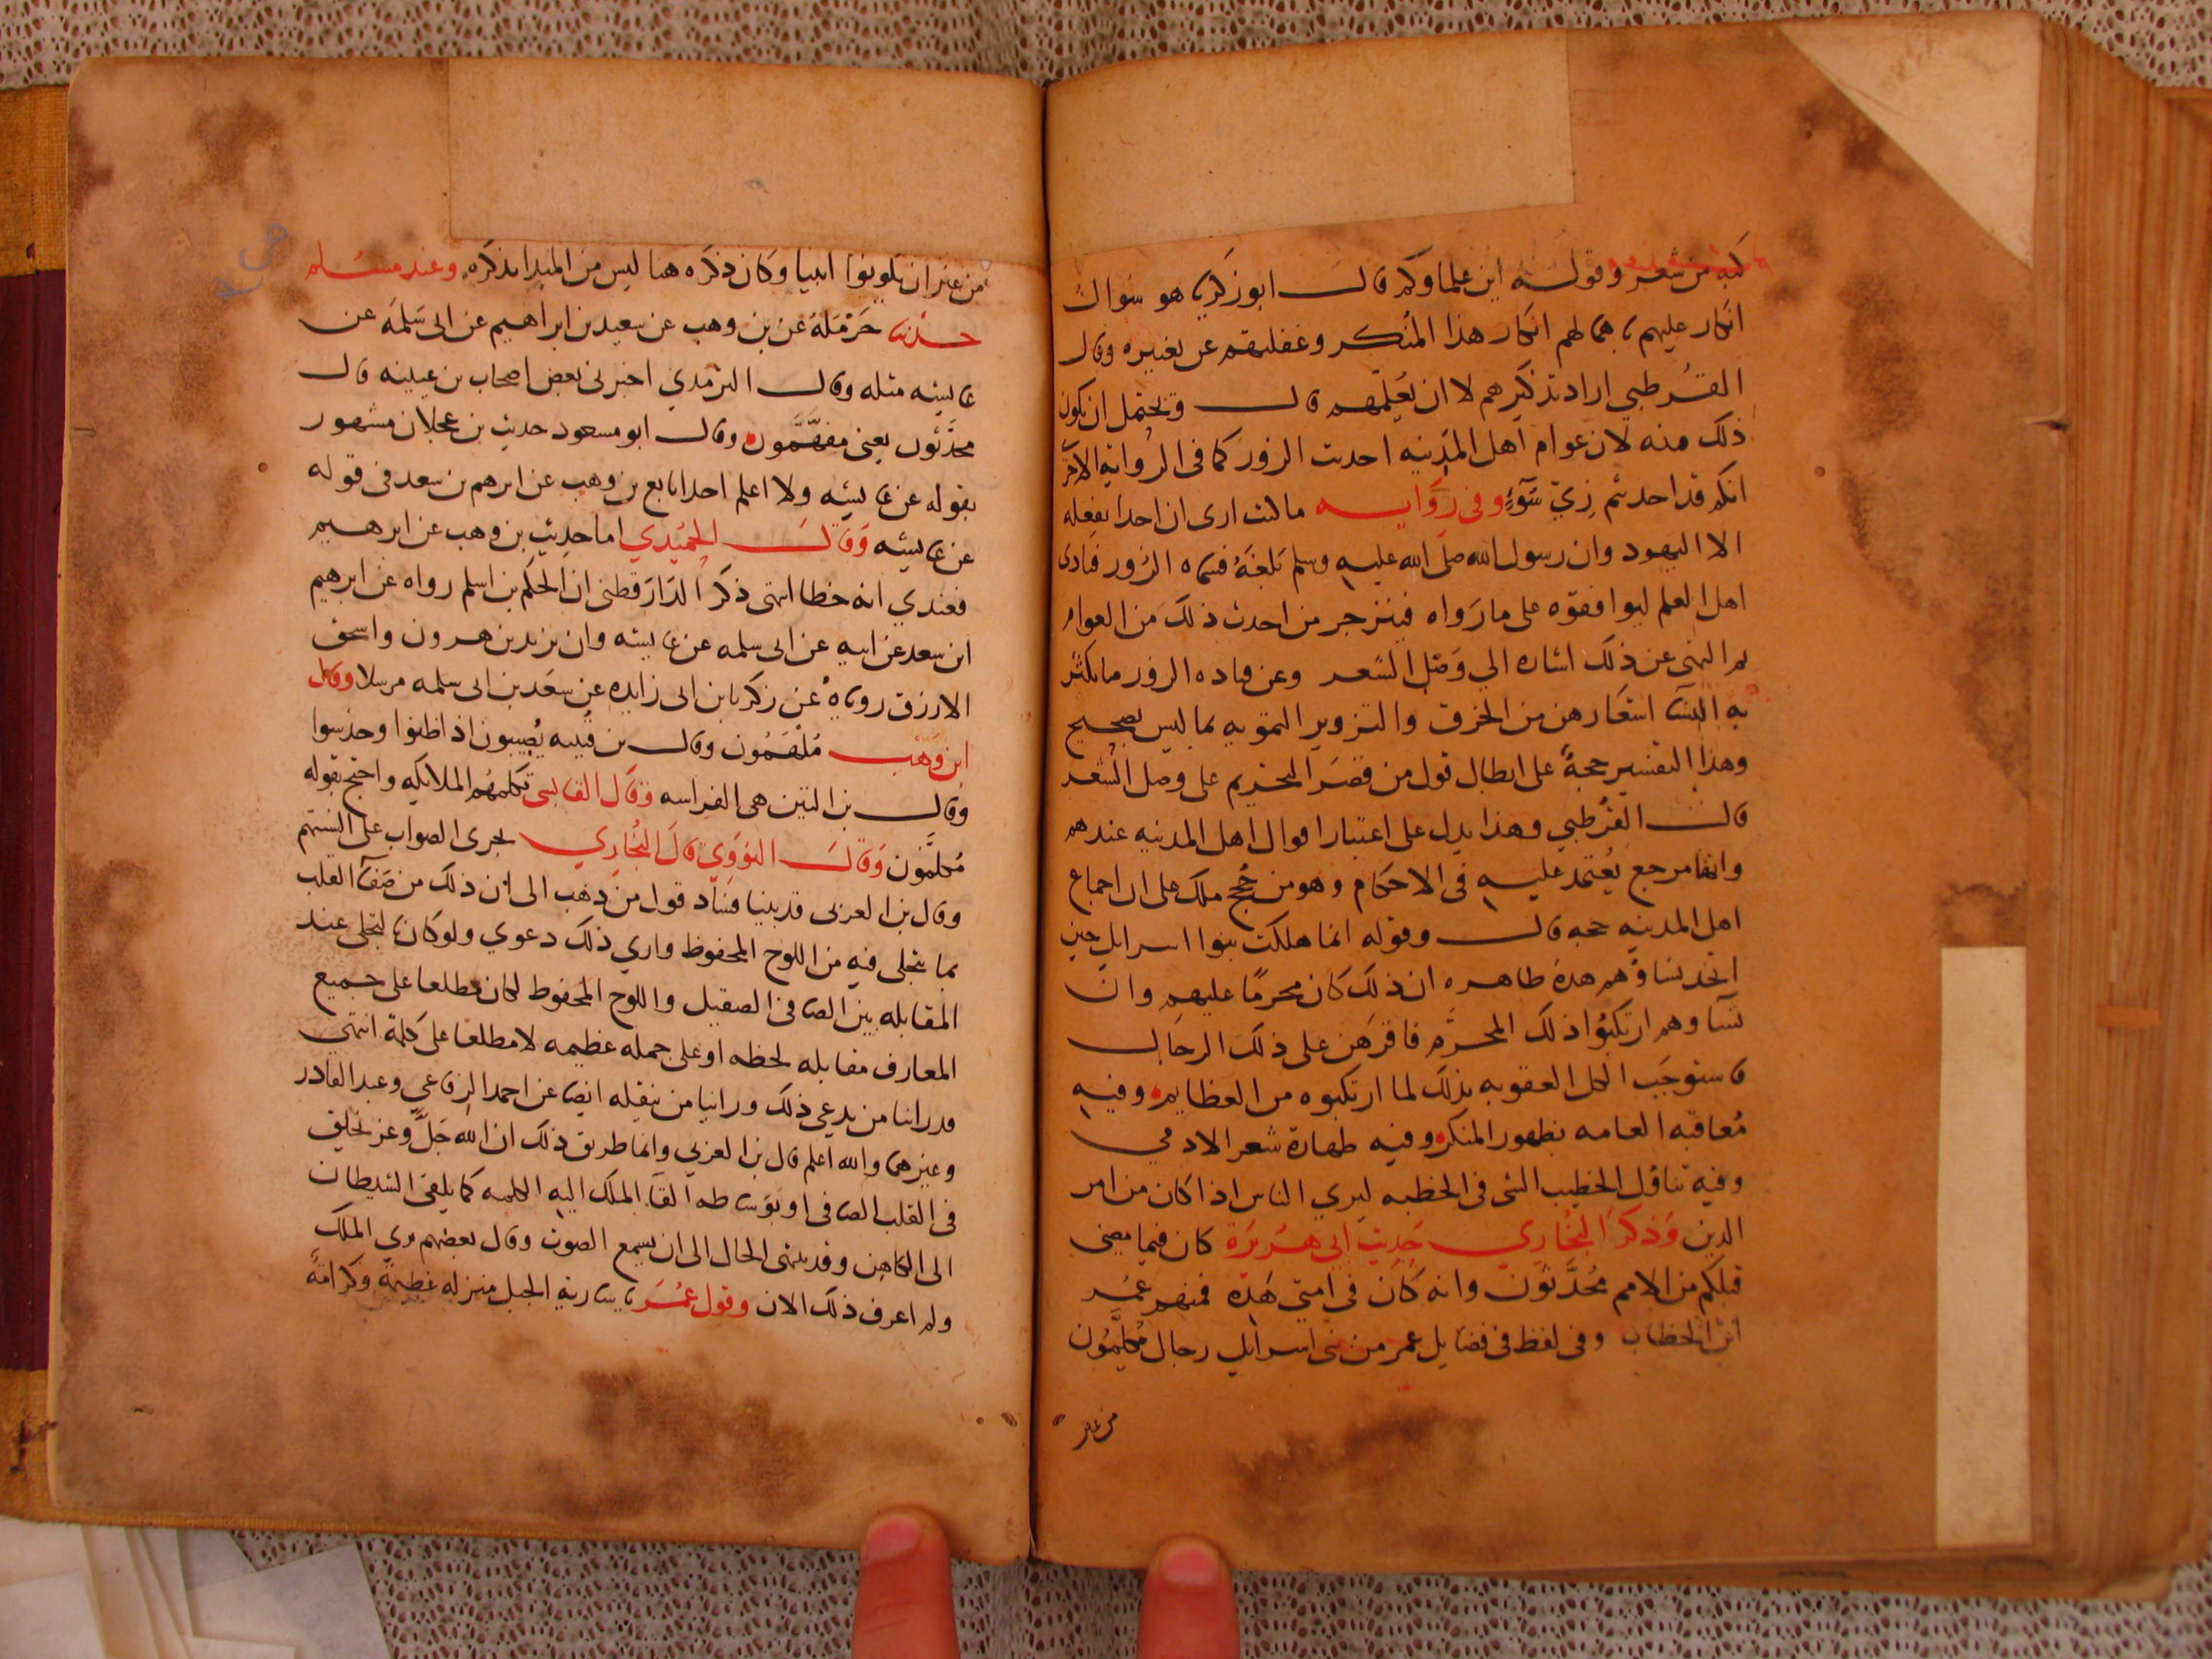 كبه من شعر وقوله اين علماوكم قال ابو زكريا هو سوال
انكار عليهم باهمالهم انكار هذا المنكر وغفلتهم عن تغييره وقال
القرطبي اراد تذكيرهم لا ان يُعَلِّمهم قال ويحتمل ان يكون
ذلك منه لان عوام اهل المدينه احدث الزور كما في الرواية الاخرى
انكم قد احدثتم زِيّ سَوْءٍ وفي رواية ما كنت ارى ان احدا يفعله
الا اليهود وان رسول الله صلى الله عليه وسلم بَلَغَهُ فسماه الزور فنادى
اهل العلم ليوافقوه على ما رَواه فينزجر من احدث ذلك من العوام
لم النهي عن ذلك اشاره الي وَصْل الشعر وعن قتاده الزور ما يكثر
به النسا اشعارهن من الخرق والتزوير التمويه بما ليس بصحيح
وهذا التفسير حجةٌ على ابطال قول من قصَر التحريم على وصل الشعر
قال القرطبي وهذا يدل على اعتبار اقوال اهل المدينه عندهم
وانها مرجع يُعتمد عليه في الاحكام وهو من حُجج ملك على ان اجماع
اهل المدينه حجه قال وقوله انما هلكت بنوا اسرايل حين
اتخذ نساوهم هذه ظاهره ان ذلك كان محرمًا عليهم وان
نسآوهم ارتكبوا ذلك المحرَّم فاقرهن على ذلك الرجال
فاستوجَب الكل العقوبه بذلك لما ارتكبوه من العظايم وفيه
مُعاقبه العامه بظهور المنكر وفيه طهارة شعر الادمي
وفيه تناول الخطيب الشي في الخطبه ليري الناس اذا كان من امر
الدين وَذكرَ البُخَاري حَدِيث ابي هُرَيْرَة كان فيما مضى
قبلكم من الامم مُحدَّثون وانه كان في امتي هذه فمنهم عُمر
ابن الخطاب وفي لفظ في فضايل عمر من بني اسرايل رجال مُكلَّمُون
من غير
من غير ان يكونوا انبيا وكان ذكره هنا ليس من المبدا بذكره وعند مسلم
حدثنا حَرْمَلةُ عن بن وهب عن سعيد بن ابراهيم عن ابي سَلمَه عن
عايشه مثله وقال الترمذي اخبرني بعض اصحاب بن عيينه قال
محدَّثون يعني مفهَّمون وقال ابو مسعود حديث بن عجلان مشهور
بقوله عن عايشه ولا اعلم احدا تابع بن وهب عن ابرهيم بن سعد في قوله
عن عايشه وَقالَ الحُميدي اما حديث بن وهب عن ابرهيم
فعندي انه خطا انتهى ذكر الدّارَقطني ان الحكم بن اسلم رواه عن ابرهيم
ابن سعد عن ابيه عن ابي سلمه عن عايشه وان يزيد بن هرون واسحق
الازرق روياهُ عن زكريا بن ابي زايده عن سَعد بن ابي سلمه مرسلا وقال
ابن وَهْب مُلهَمُون وقال بن قتيبه يُصيبون اذا ظنوا وحدسوا
وقال بن التين هي الفراسه وَقال القابسي تكلمهُم الملايكه واحتج بقوله
مُكلَّمون وَقالَ النوَوِي قالَ البُخاري يجري الصواب على السنتهم
وقال بن العربي قد بينا فساد قول من ذهب الى ان ذلك من صَفآ القلب
بما يتجلى فيه من اللوح المحفوظ واري ذلك دعوي ولو كان يتجلى عند
المقابله بين الصافي الصقيل واللوح المحفوظ لكان مطلعا على جميع
المعارف مقابله لحظه او على جمله عظيمه لا مطلعا على كلمة انتهى
وراينا من يدعي ذلك وراينا من ينقله ايضا عن احمد الرفاعي وعبد القادر
وغيرهما والله اعلم قال بن العربي وانما طريق ذلك ان الله جَلَّ وعز يخلق
في القلب الصافي او بوَساطه القآ الملك اليه الكلمه كما يلقي الشيطان
الى الكاهن وقد ينتهى الحال الى ان يسمع الصوت وقال بعضهم يرى الملك
ولم اعرف ذلك الان وقول عُمَر يا ساريه الجبل منزله عظيمةٌ وكرامةٌ